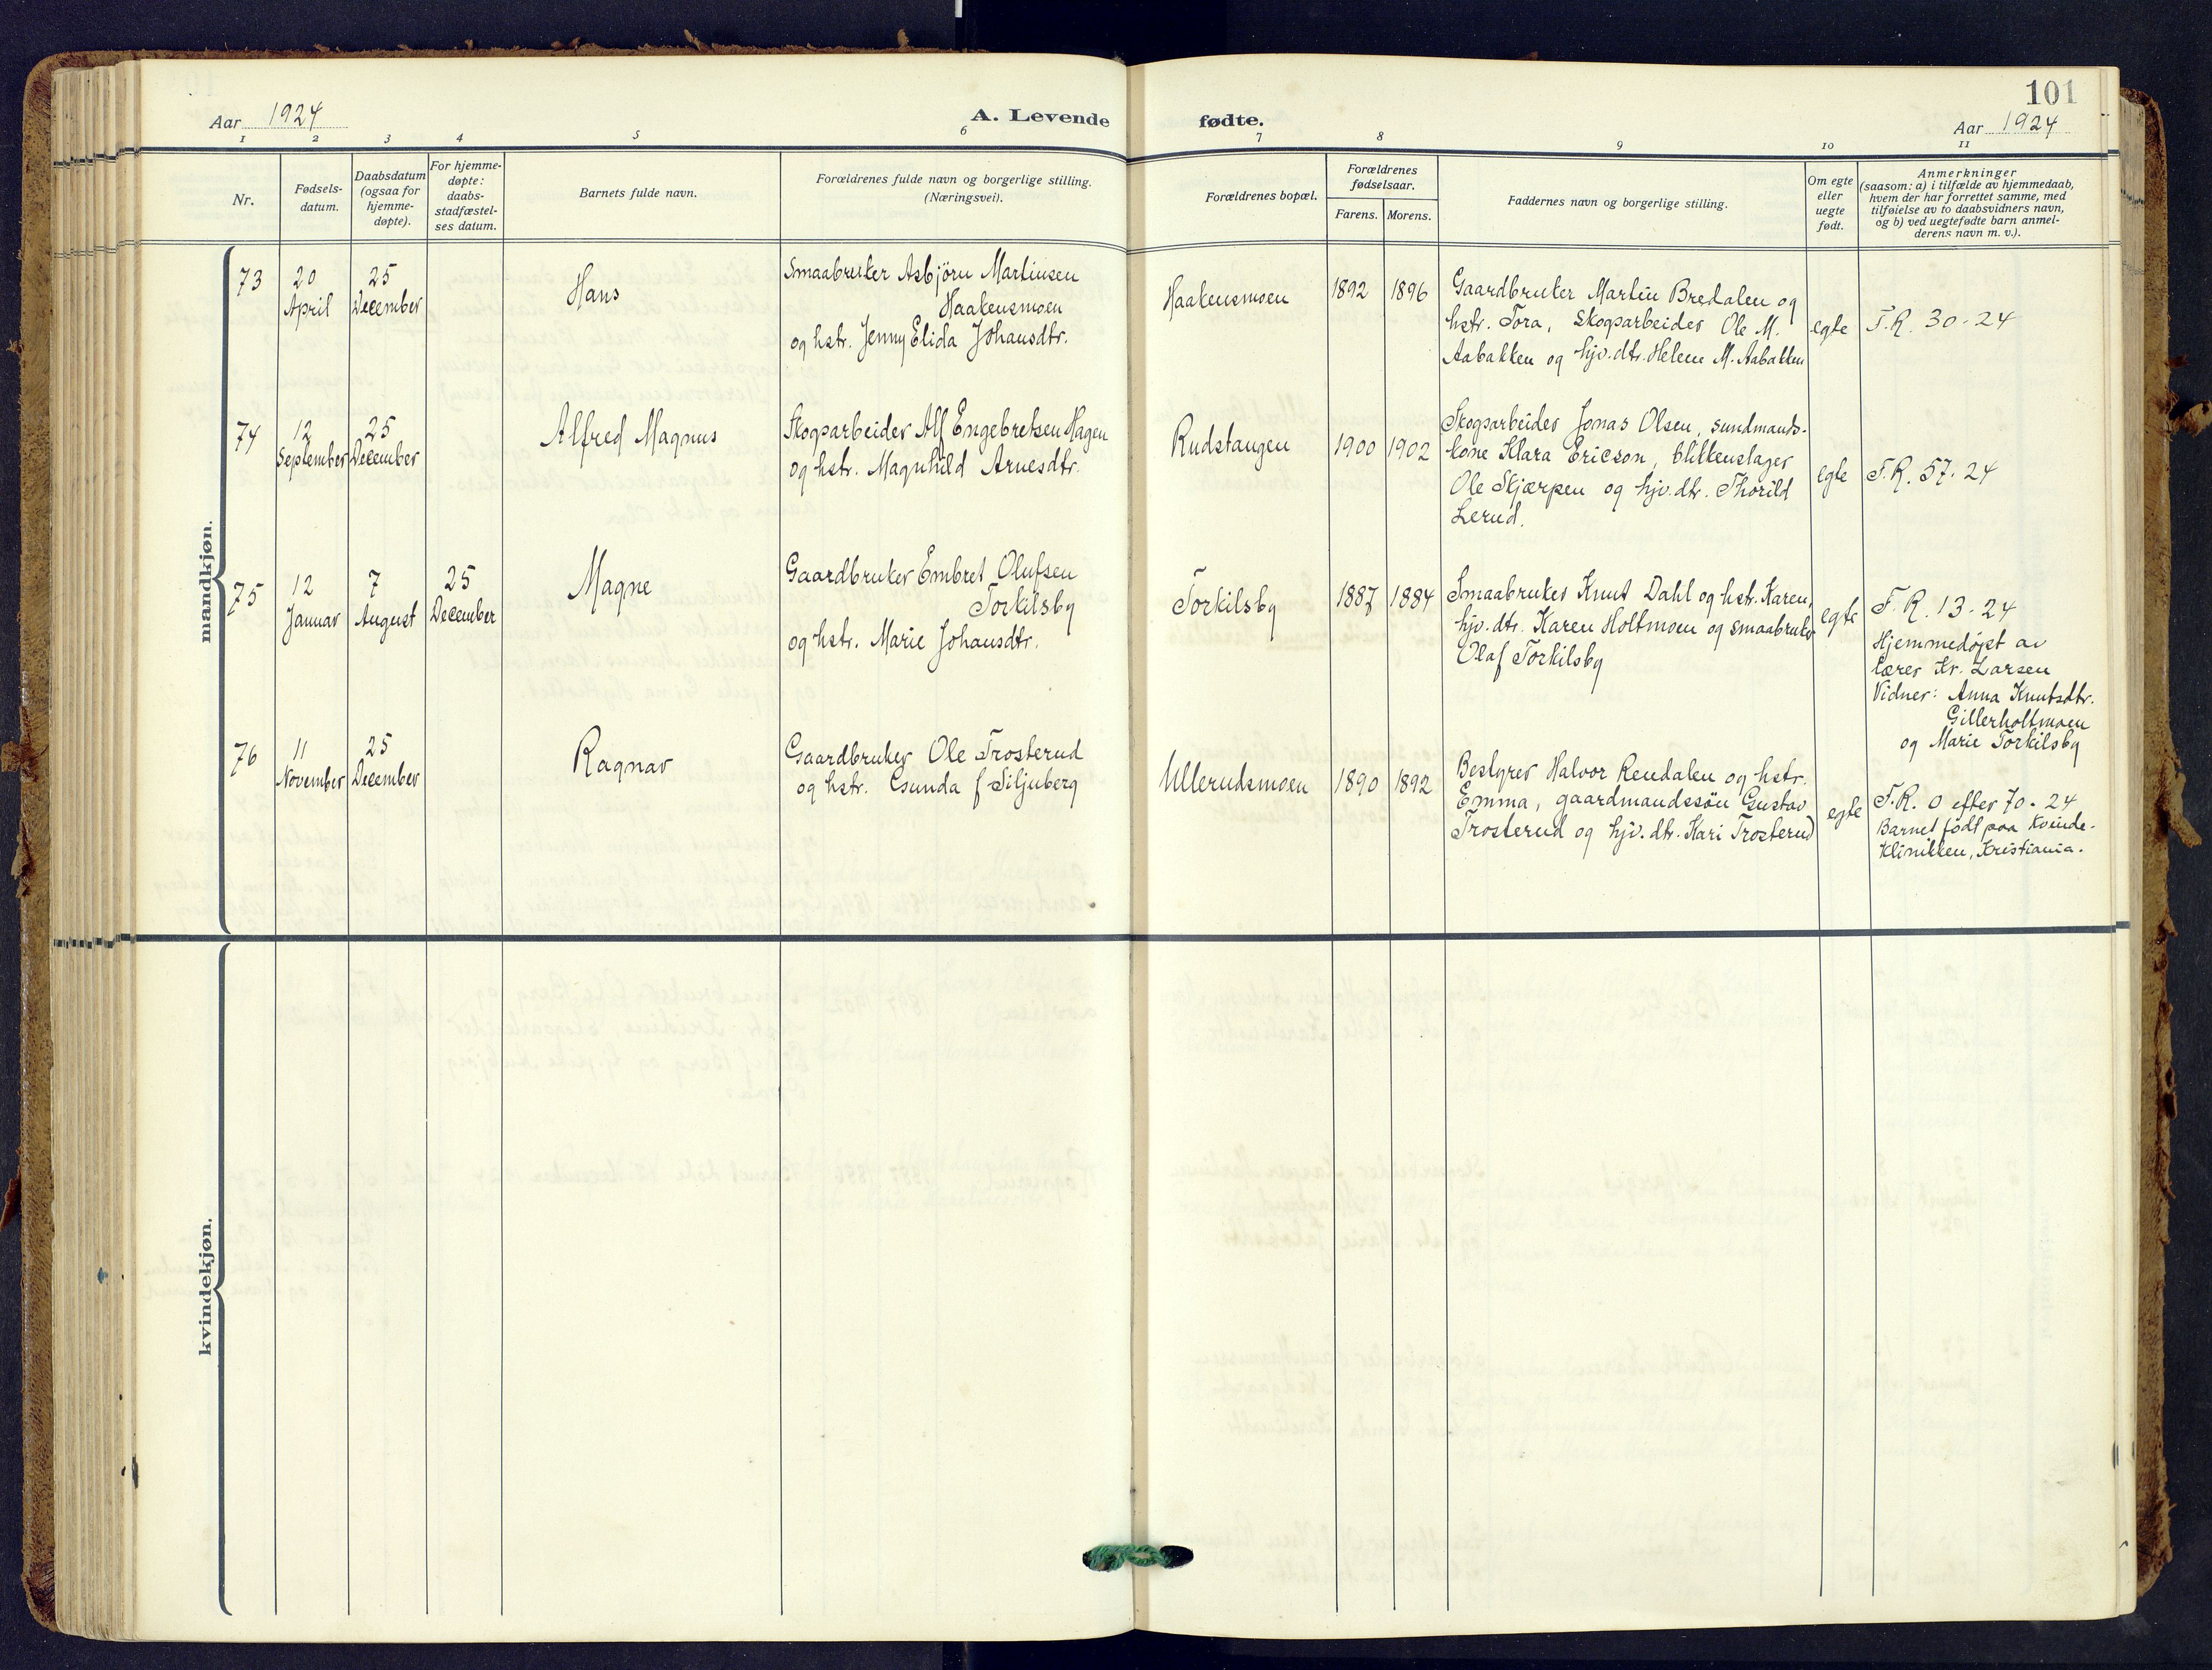 101
Aar 1924
A. Levende fødte.
Aar 1924
1 2 3 4 5 6 7 8 9 10 11
Nr.
Fødsels-
datum.
Daabsdatum
(ogsaa for
hjemme-
døpte).
For hjemme-
døpte:
daabs-
stadfæstel-
ses datum.
Barnets fulde navn.
Forældrenes fulde navn og borgerlige stilling.
(Næringsvei).
Forældrenes bopæl.
Forældrenes
fødselsaar.
Farens. Morens.
Faddernes navn og borgerlige stilling.
Om egte
eller
uegte
født.
Anmerkninger
(saasom: a) i tilfælde av hjemmedaab,
hvem der har forrettet samme, med
tilføielse av to daabsvidners navn,
og b) ved uegtefødte barn anmel-
derens navn m. v.).
mandkjøn.
73
20
April
25
December
Hans
Smaabruker Asbjörn Martinsen
Haakensmoen
og hstr. Jenny Elida Johansdtr.
Haakensmoen
1892
1896
Gaardbruker Martin Bredalen og
hstr. Tora, skogsarbeider Ole M.
Aabakken og hjv. dtr. Helene M. Aabakken
egte
F.R. 30-24
74
12
September
25
December
Alfred Magnus
Skogsarbeider Alf Engebretsen Hagen
og hstr. Magnhild Arnesdtr.
Rudstangen
1900
1902
Skogsarbeider Jonas Olsen, sundmands-
kone Klara Ericson, blikkenslager
Ole Skjærpen og hjv. dtr. Thorild
Lerud.
egte
F.R. 57-24
75
12
Januar
7
August
25
December
Magne
Gaardbruker Embret Olufsen
Torkilsby
og hstr. Marie Johansdtr.
Torkilsby
1887
1884
Smaabruker Knut Dahl og hstr. Karen,
hjv. dtr. Karen Holtmoen og smaabruker
Olaf Torkilsby
egte
F.R. 13-24
Hjemmedøpt av
lærer Kr. Larsen
Vidner: Anna Knutsdtr.
Gillerholtmoen
og Marie Torkilsby
76
11
November
25
December
Ragnar
Gaardbruker Ole Trosterud
og hstr. Gunda f Siljuberg
Ullerudsmoen
1890
1892
Bestyrer Halvor Rendalen og hstr.
Emma, gaardmandssön Gustav
Trosterud og hjv. dtr. Kari Trosterud
egte
F.R. 0 efter 70-24
Barnet födt paa Kvinde-
klinikken, Kristiania.
kvindekjøn.